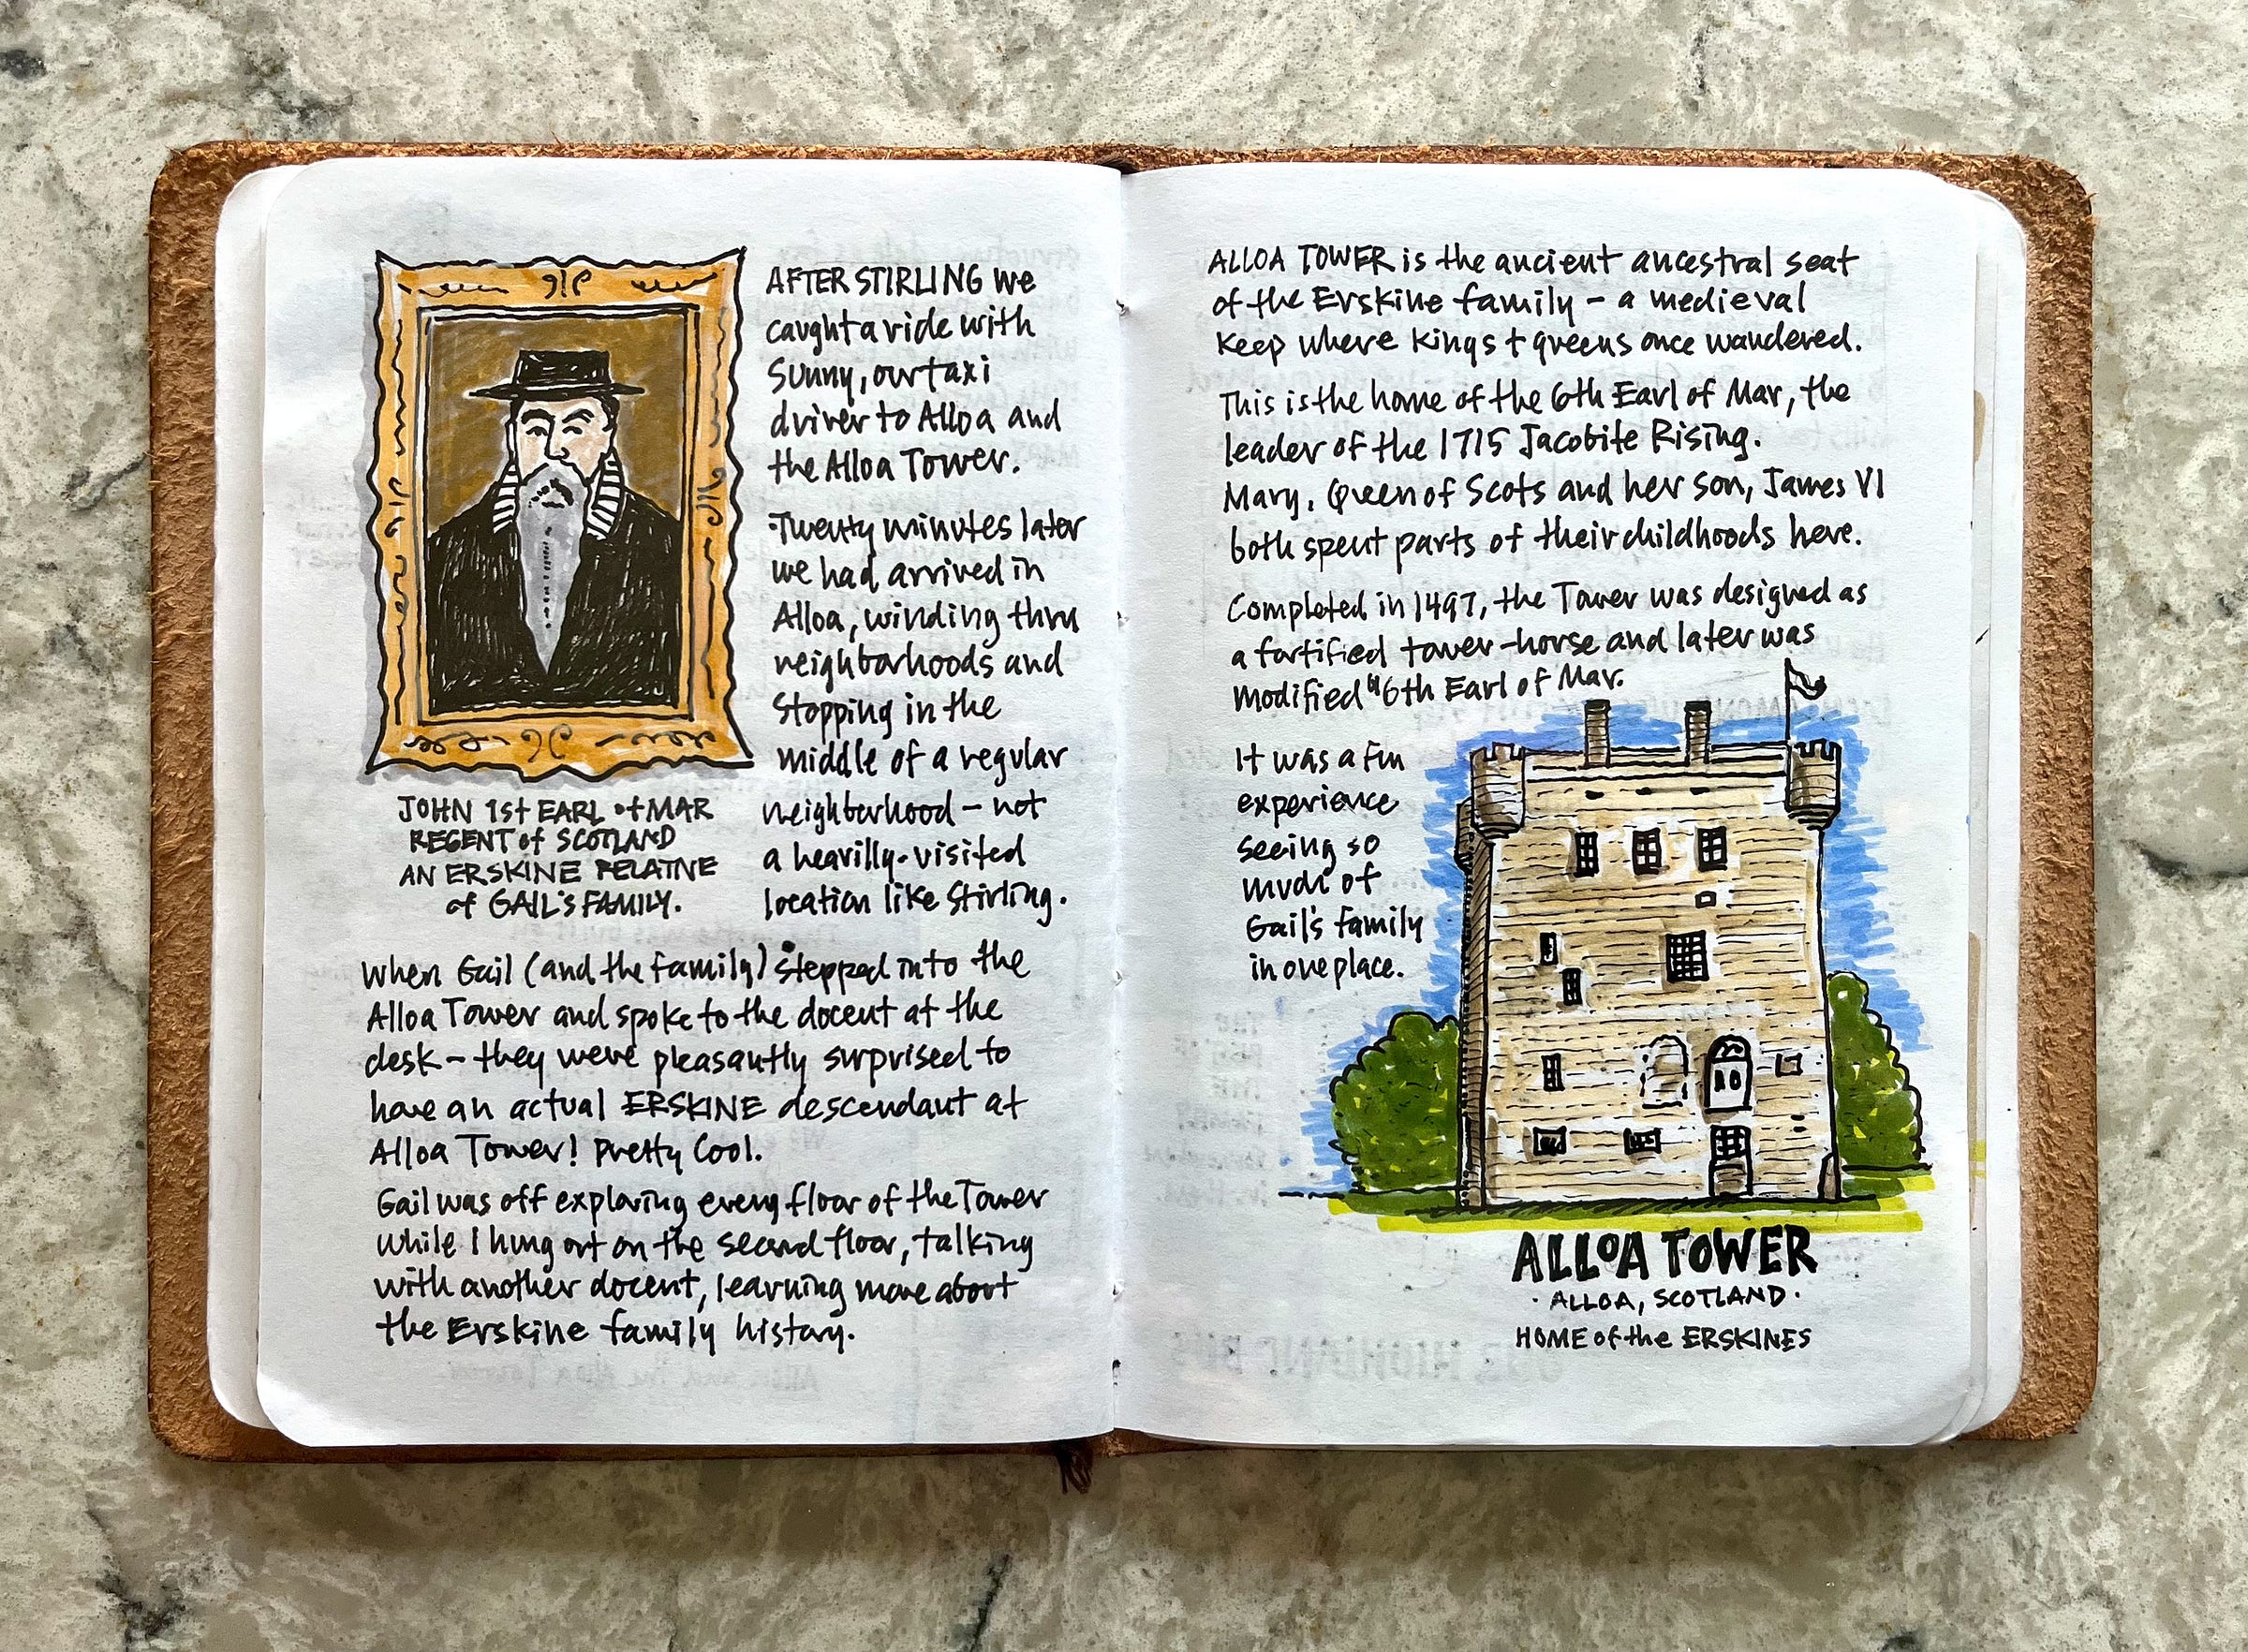 AFTER STIRLING we
caught a ride with
Sunny, our taxi
driver to Alloa and
the Alloa Tower.
Twenty minutes later
we had arrived in
Alloa, winding thru
neighborhoods and
stopping in the
middle of a regular
neighborhood – not
a heavilly-visited
location like Stirling.
JOHN 1st EARL of MAR
REGENT of SCOTLAND
AN ERSKINE RELATIVE
of GAIL'S FAMILY.
When Gail (and the family) stepped into the
Alloa Tower and spoke to the docent at the
desk – they were pleasantly surprised to
have an actual ERSKINE descendant at
Alloa Tower! Pretty Cool.
Gail was off exploring every floor of the Tower
while I hung out on the second floor, talking
with another docent, learning more about
the Erskine family history.
ALLOA TOWER is the ancient ancestral seat
of the Erskine family – a medieval
keep where kings + queens once wandered.
This is the home of the 6th Earl of Mar, the
leader of the 1715 Jacobite Rising.
Mary, Queen of Scots and her son, James VI
both spent parts of their childhoods here.
Completed in 1497, the Tower was designed as
a fortified tower-house and later was
modified by 6th Earl of Mar.
It was a fun
experience
seeing so
much of
Gail's family
in one place.
ALLOA TOWER
· ALLOA, SCOTLAND ·
HOME of the ERSKINES